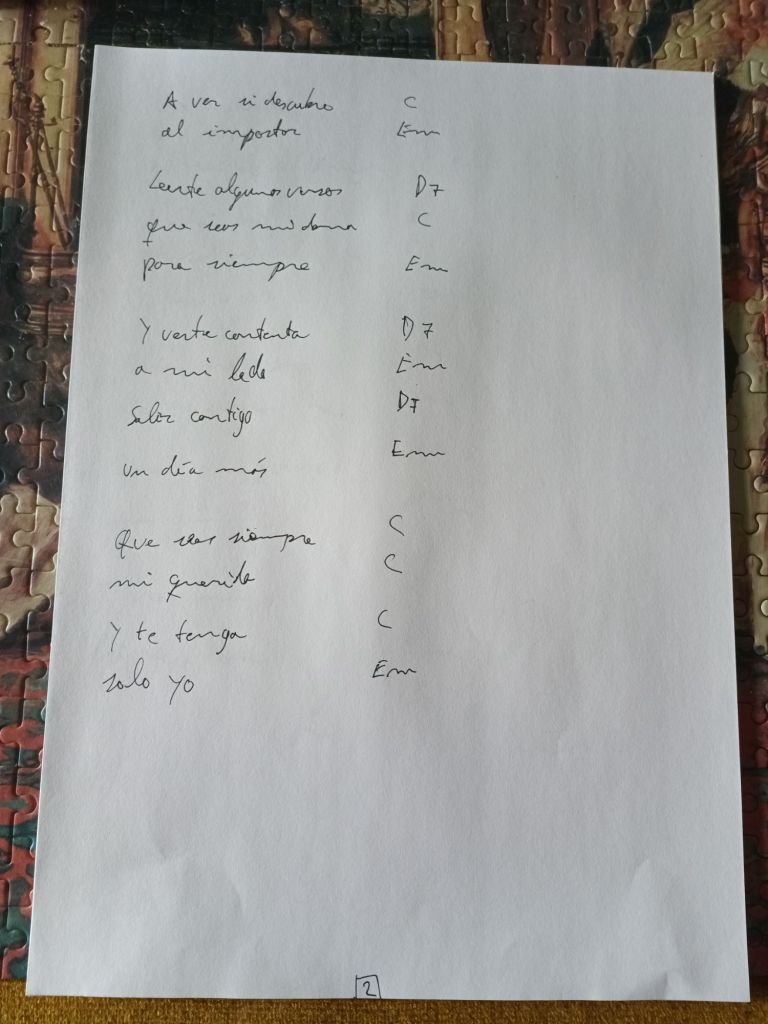 A ver si descubro C
al impostor Em
Leerte algunos versos D7
que seas mi dama C
para siempre Em
Y verte contenta D7
a mi lado Em
Salir contigo D7
un día más Em
Que seas siempre C
mi querida C
Y te tenga C
solo yo Em
2